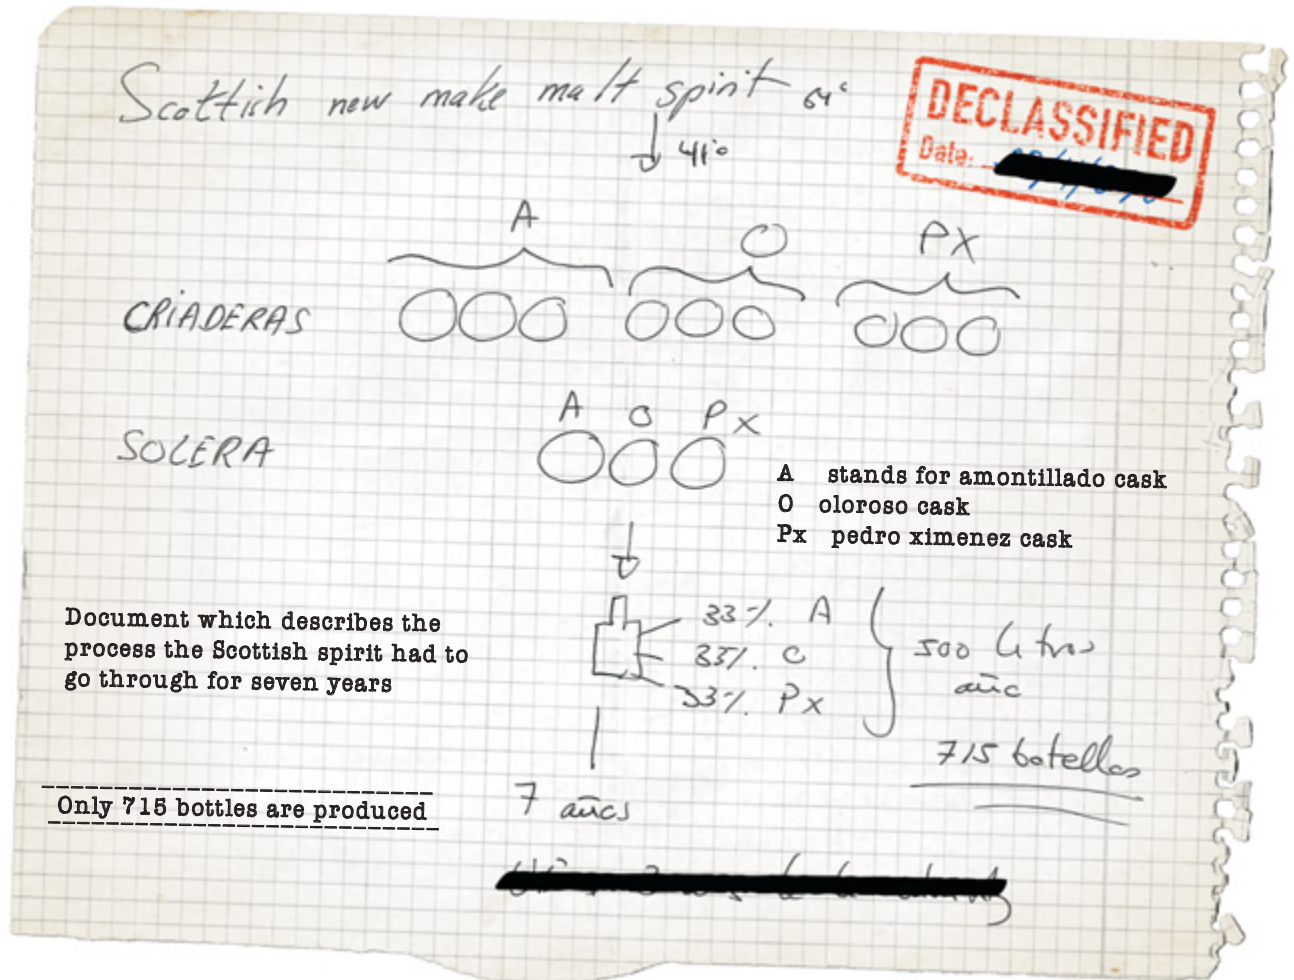 Scottich new make malt spirit 64°
DECLASSIFIED
Date:
41°
A
O
PX
CRIADERAS
A O PX
SOLERA
A stands for amontillado cask
O oloroso cask
Px pedro ximenez cask
Document which describes the
process the Scottish spirit had to
go through for seven years
33%. A
33%. O
33%. Px
500 litros
año
715 botellas
Only 715 bottles are produced
7 años